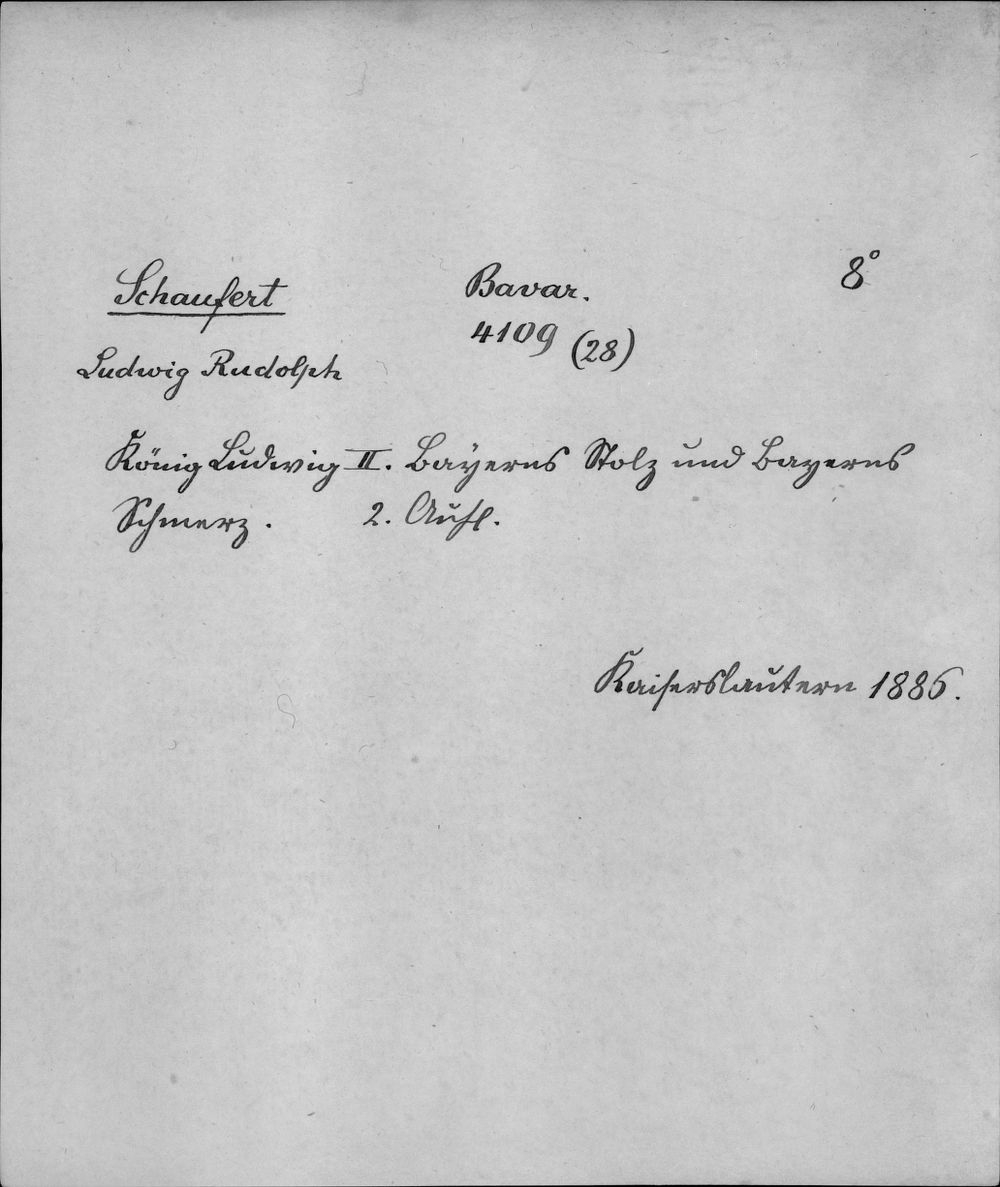 Schaufert
Bavar.
8°
4109 (28)
Ludwig Rudolph
König Ludwig II. Bayerns Stolz und Bayerns
Schmerz. 2. Aufl.
Kaiserslautern 1886.